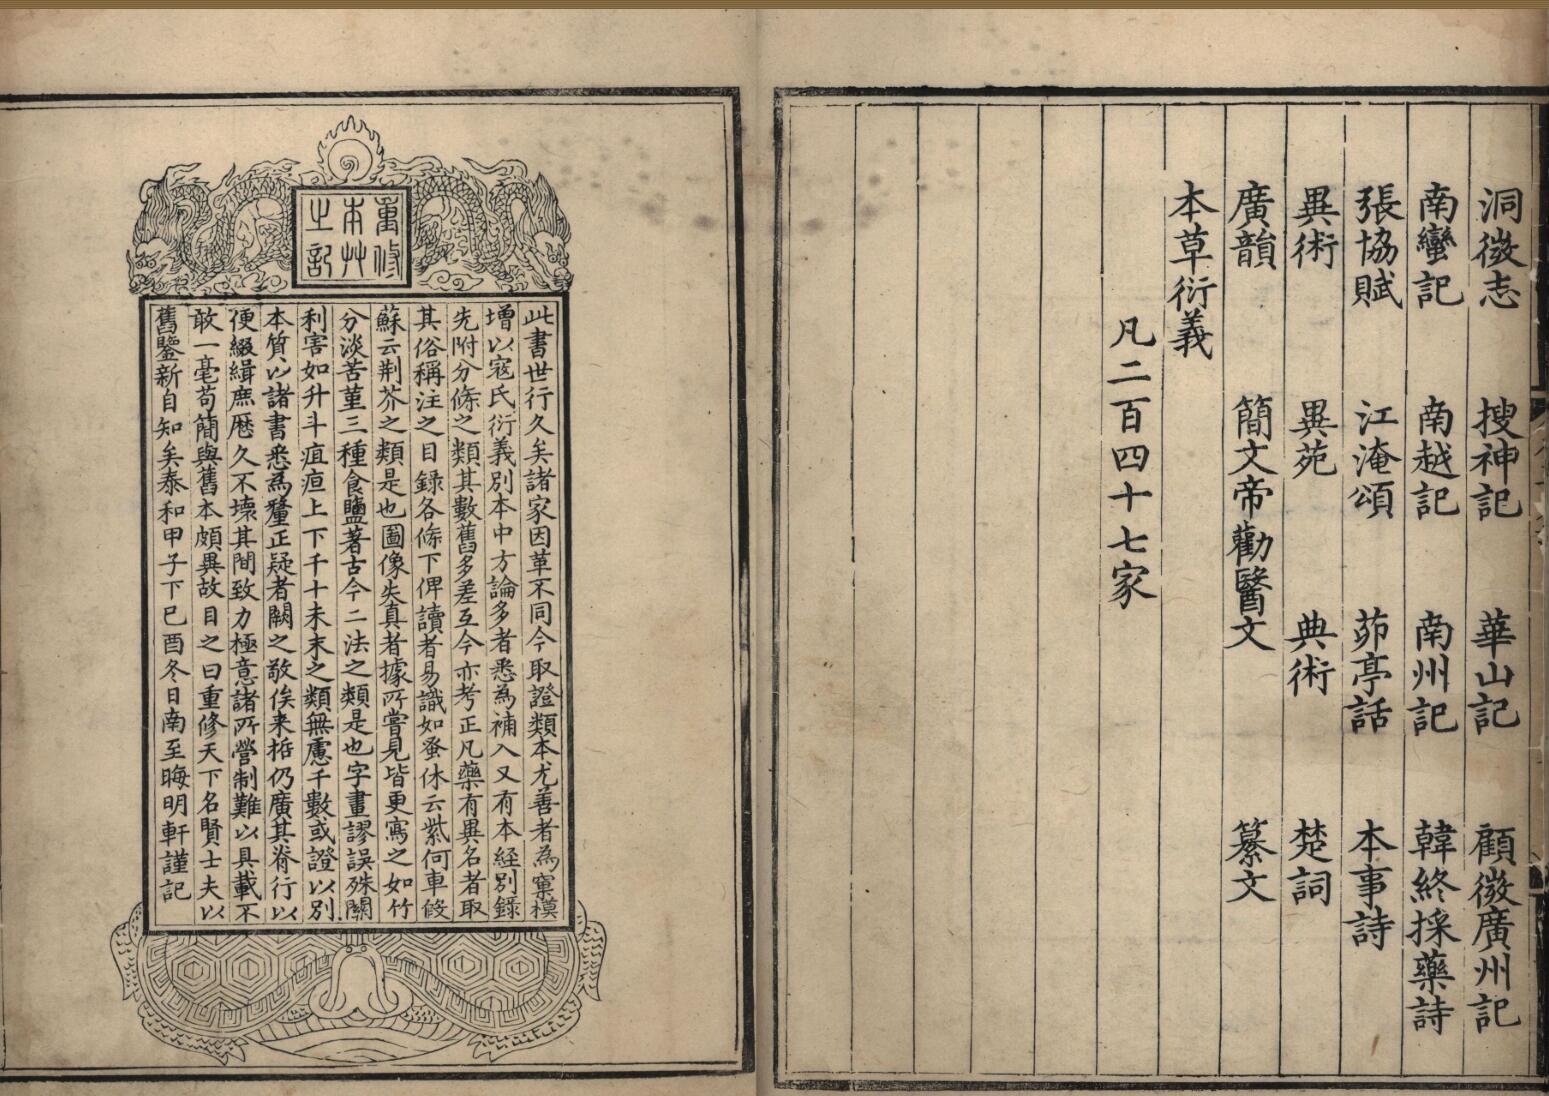 洞微志　搜神記　華山記　顧微廣州記
南蠻記　南越記　南州記　韓終採藥詩
張協賦　江淹頌　茆亭話　本事詩
異術　異苑　典術　楚詞
廣韻　簡文帝勸醫文　纂文
本草衍義
凡二百四十七家
重修
本艸
之記
此書世行久矣諸家因革不同今取證類本尤善者為窠模
增以寇氏衍義別本中方論多者悉為補入又有本經別錄
先附分條之類其數舊多差互今亦考正凡藥有異名者取
其俗稱注之目録各條下俾讀者易識如蚤休云紫何車假
蘇云荆芥之類是也圖像失真者據所嘗見皆更寫之如竹
分淡苦堇三種食鹽著古今二法之類是也字畫謬誤殊關
利害如升斗疽疸上下千十未末之類無慮千數或證以別
本質以諸書悉為釐正疑者闕之敬俟来哲仍廣其脊行以
便綴緝庶歷久不壊其間致力極意諸所營制難以具載不
敢一毫苟簡與舊本頗異故目之曰重修天下名賢士夫以
舊鑒新自知矣泰和甲子下己酉冬日南至晦明軒謹記